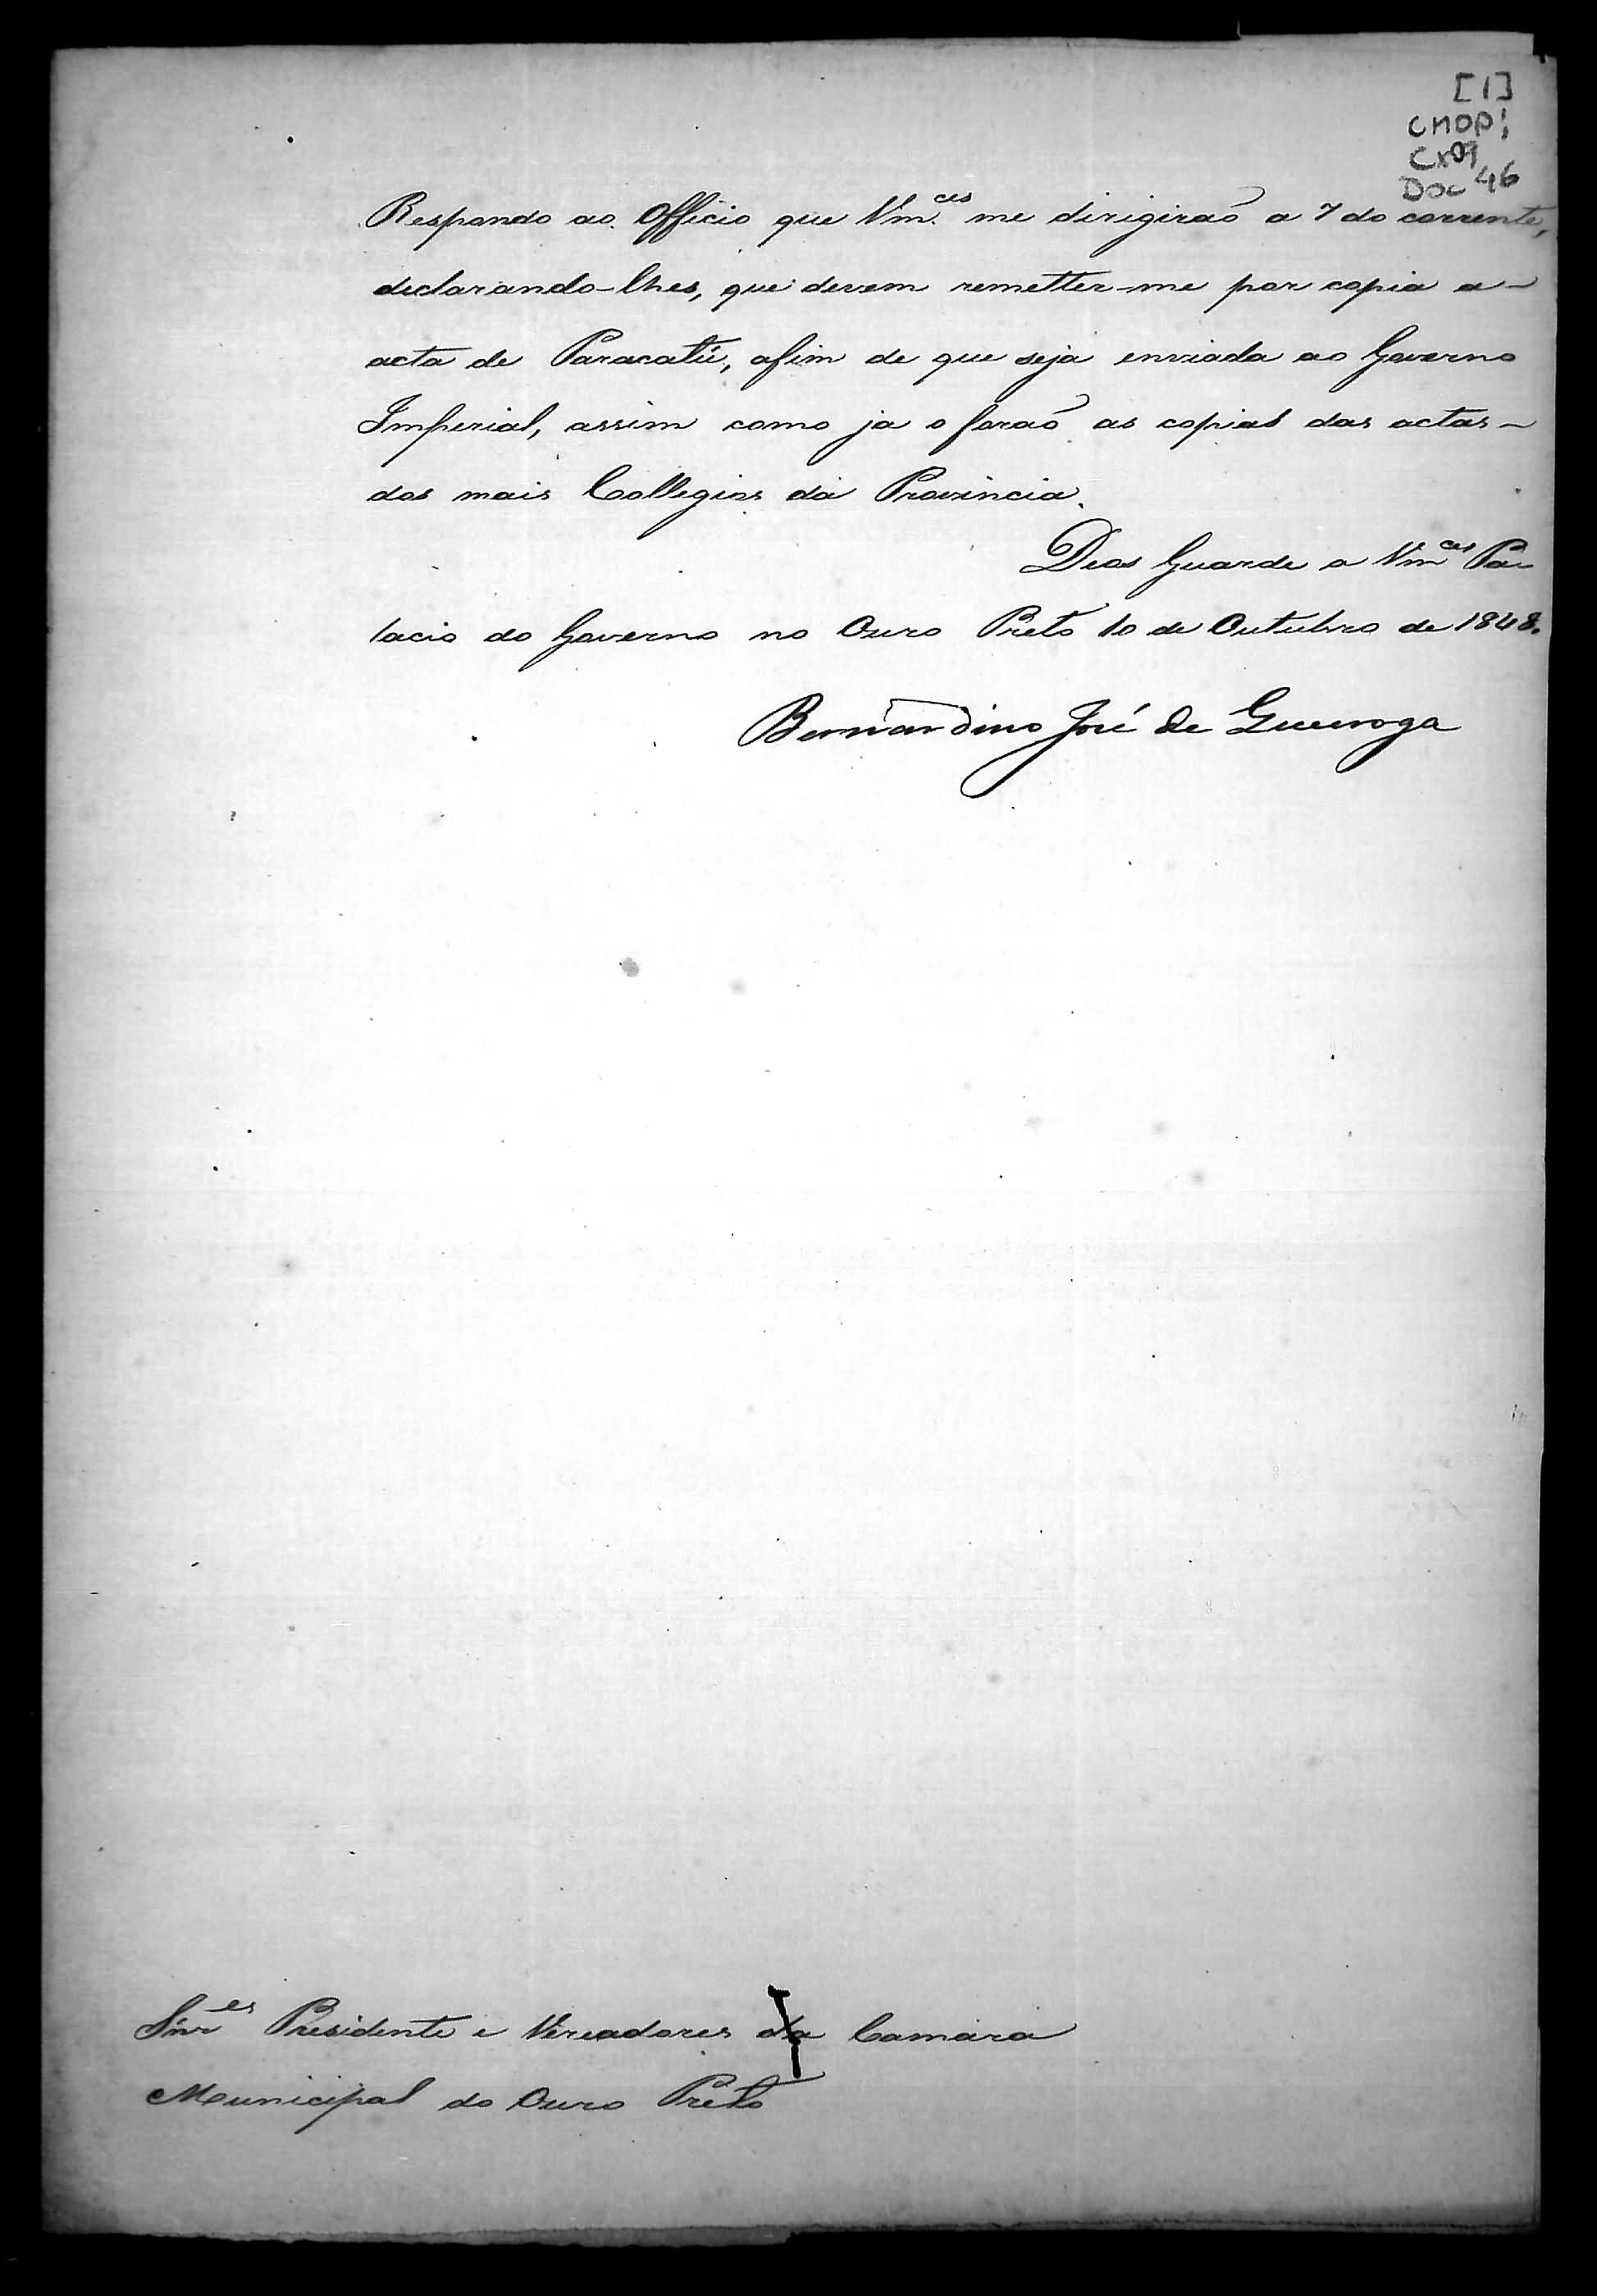 [1]
CMOP;
CX09
DOC 46
Respondo ao Officio que Vm.ces me dirigiraõ a 7 do corrente,
declarando-lhes, que devem remetter-me por copia a
acta de Paracatú, afim de que seja enviada ao Governo
Imperial, assim como ja o foraõ as copias das actas
dos mais Collegios da Provincia.
Deos Guarde a Vmces Pa-
lacio do Governo no Ouro Preto 10 de Outubro de 1848.
Bernardino José de Queiroga
Snres Presidente e Vereadores da Camara
Municipal do Ouro Preto